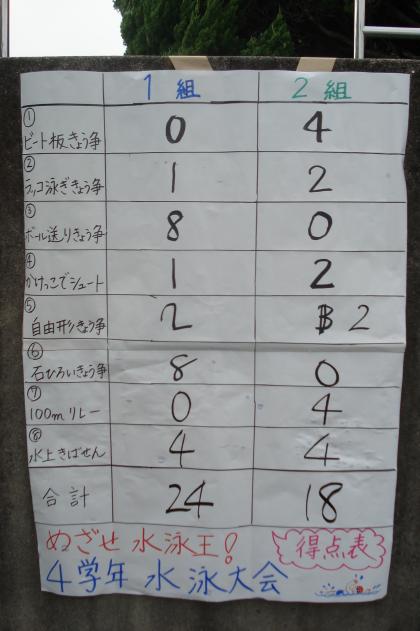 1組 2組
① ビート板きょう争 0 4
② ラッコ泳ぎきょう争 1 2
③ ボール送りきょう争 8 0
④ かけっこでシュート 1 2
⑤ 自由形きょう争 2 2
⑥ 石ひろいきょう争 8 0
⑦ 100mリレー 0 4
⑧ 水上きばせん 4 4
合計 24 18
めざせ 水泳王! 得点表
4学年 水泳大会